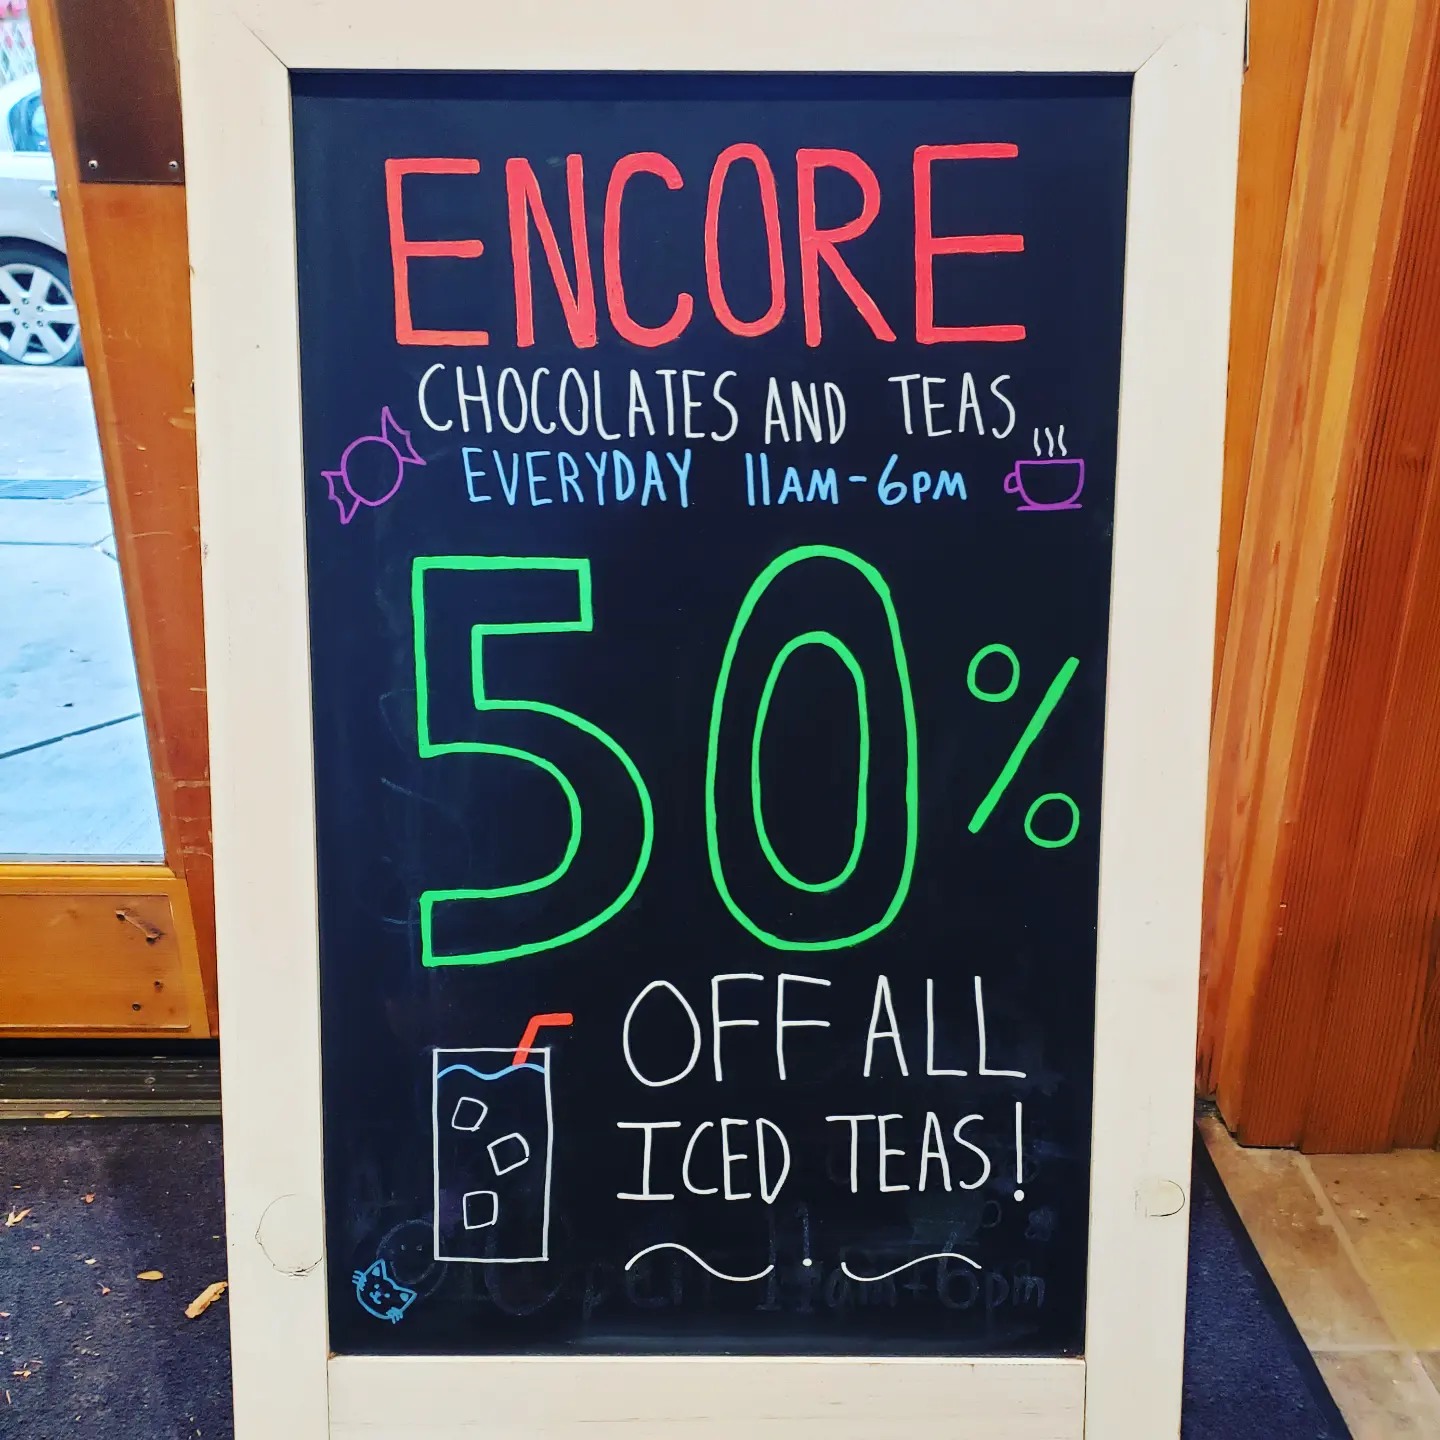 ENCORE
CHOCOLATES AND TEAS
EVERYDAY 11AM-6PM
50%
OFF ALL
ICED TEAS!
open 11am-6pm